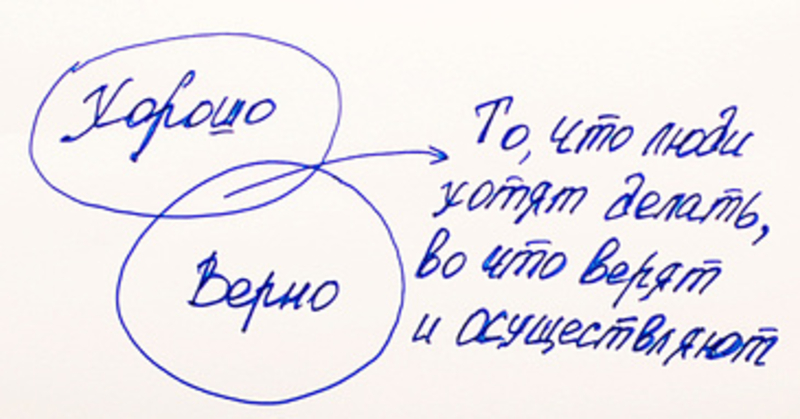 Хорошо
Верно
То, что люди
хотят делать,
во что верят
и осуществляют